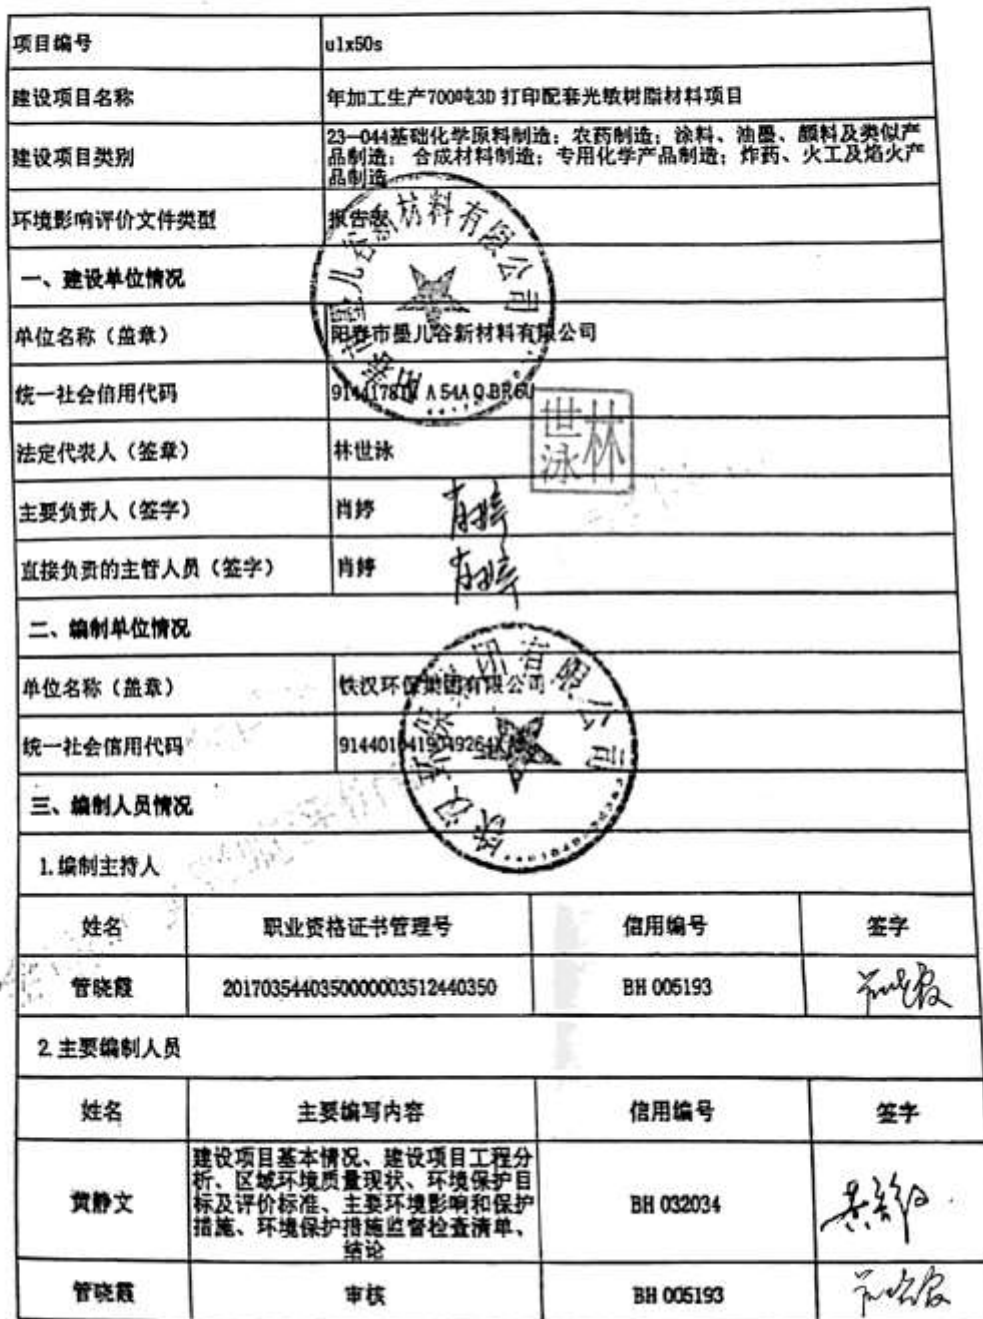 项目编号 ulx50s
建设项目名称 年加工生产700吨3D打印配套光敏树脂材料项目
建设项目类别 23—044基础化学原料制造；农药制造；涂料、油墨、颜料及类似产
品制造；合成材料制造；专用化学产品制造；炸药、火工及焰火产
品制造
环境影响评价文件类型 报告表
一、建设单位情况
单位名称（盖章） 阳春市墨儿谷新材料有限公司
统一社会信用代码
法定代表人（签章） 林世泳
林世泳
主要负责人（签字） 肖婷
肖婷
直接负责的主管人员（签字） 肖婷
肖婷
阳春市墨儿谷新材料有限公司
二、编制单位情况
单位名称（盖章） 铁汉环保集团有限公司
统一社会信用代码
铁汉环保集团有限公司
三、编制人员情况
1.编制主持人
姓名 职业资格证书管理号 信用编号 签字
管晓霞 2017035440350000003512440350 BH 005193 管晓霞
2.主要编制人员
姓名 主要编写内容 信用编号 签字
黄静文 建设项目基本情况、建设项目工程分
析、区域环境质量现状、环境保护目
标及评价标准、主要环境影响和保护
措施、环境保护措施监督检查清单、
结论 BH 032034
管晓霞 审核 BH 005193 管晓霞